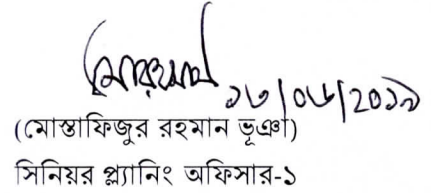 ১৩/০৬/২০১৯
(মোস্তাফিজুর রহমান ভূঞা)
সিনিয়র প্ল্যানিং অফিসার-১